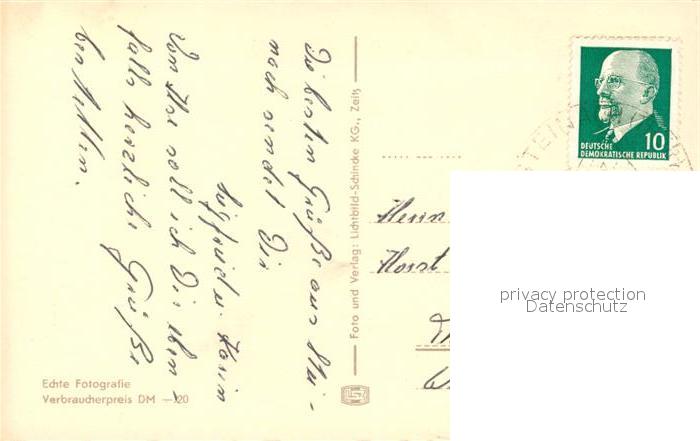 Die besten Grüße aus Stei-
nach sendet Dir
Siegfried u. Karin
Von Ilse soll ich Dir eben-
falls herzliche Grüße
bestellen.
Foto und Verlag: Lichtbild-Schincke KG., Zeitz
Echte Fotografie
Verbraucherpreis DM —,20
10
DEUTSCHE
DEMOKRATISCHE REPUBLIK
STEIN
Herrn
Horst
privacy protection
Datenschutz